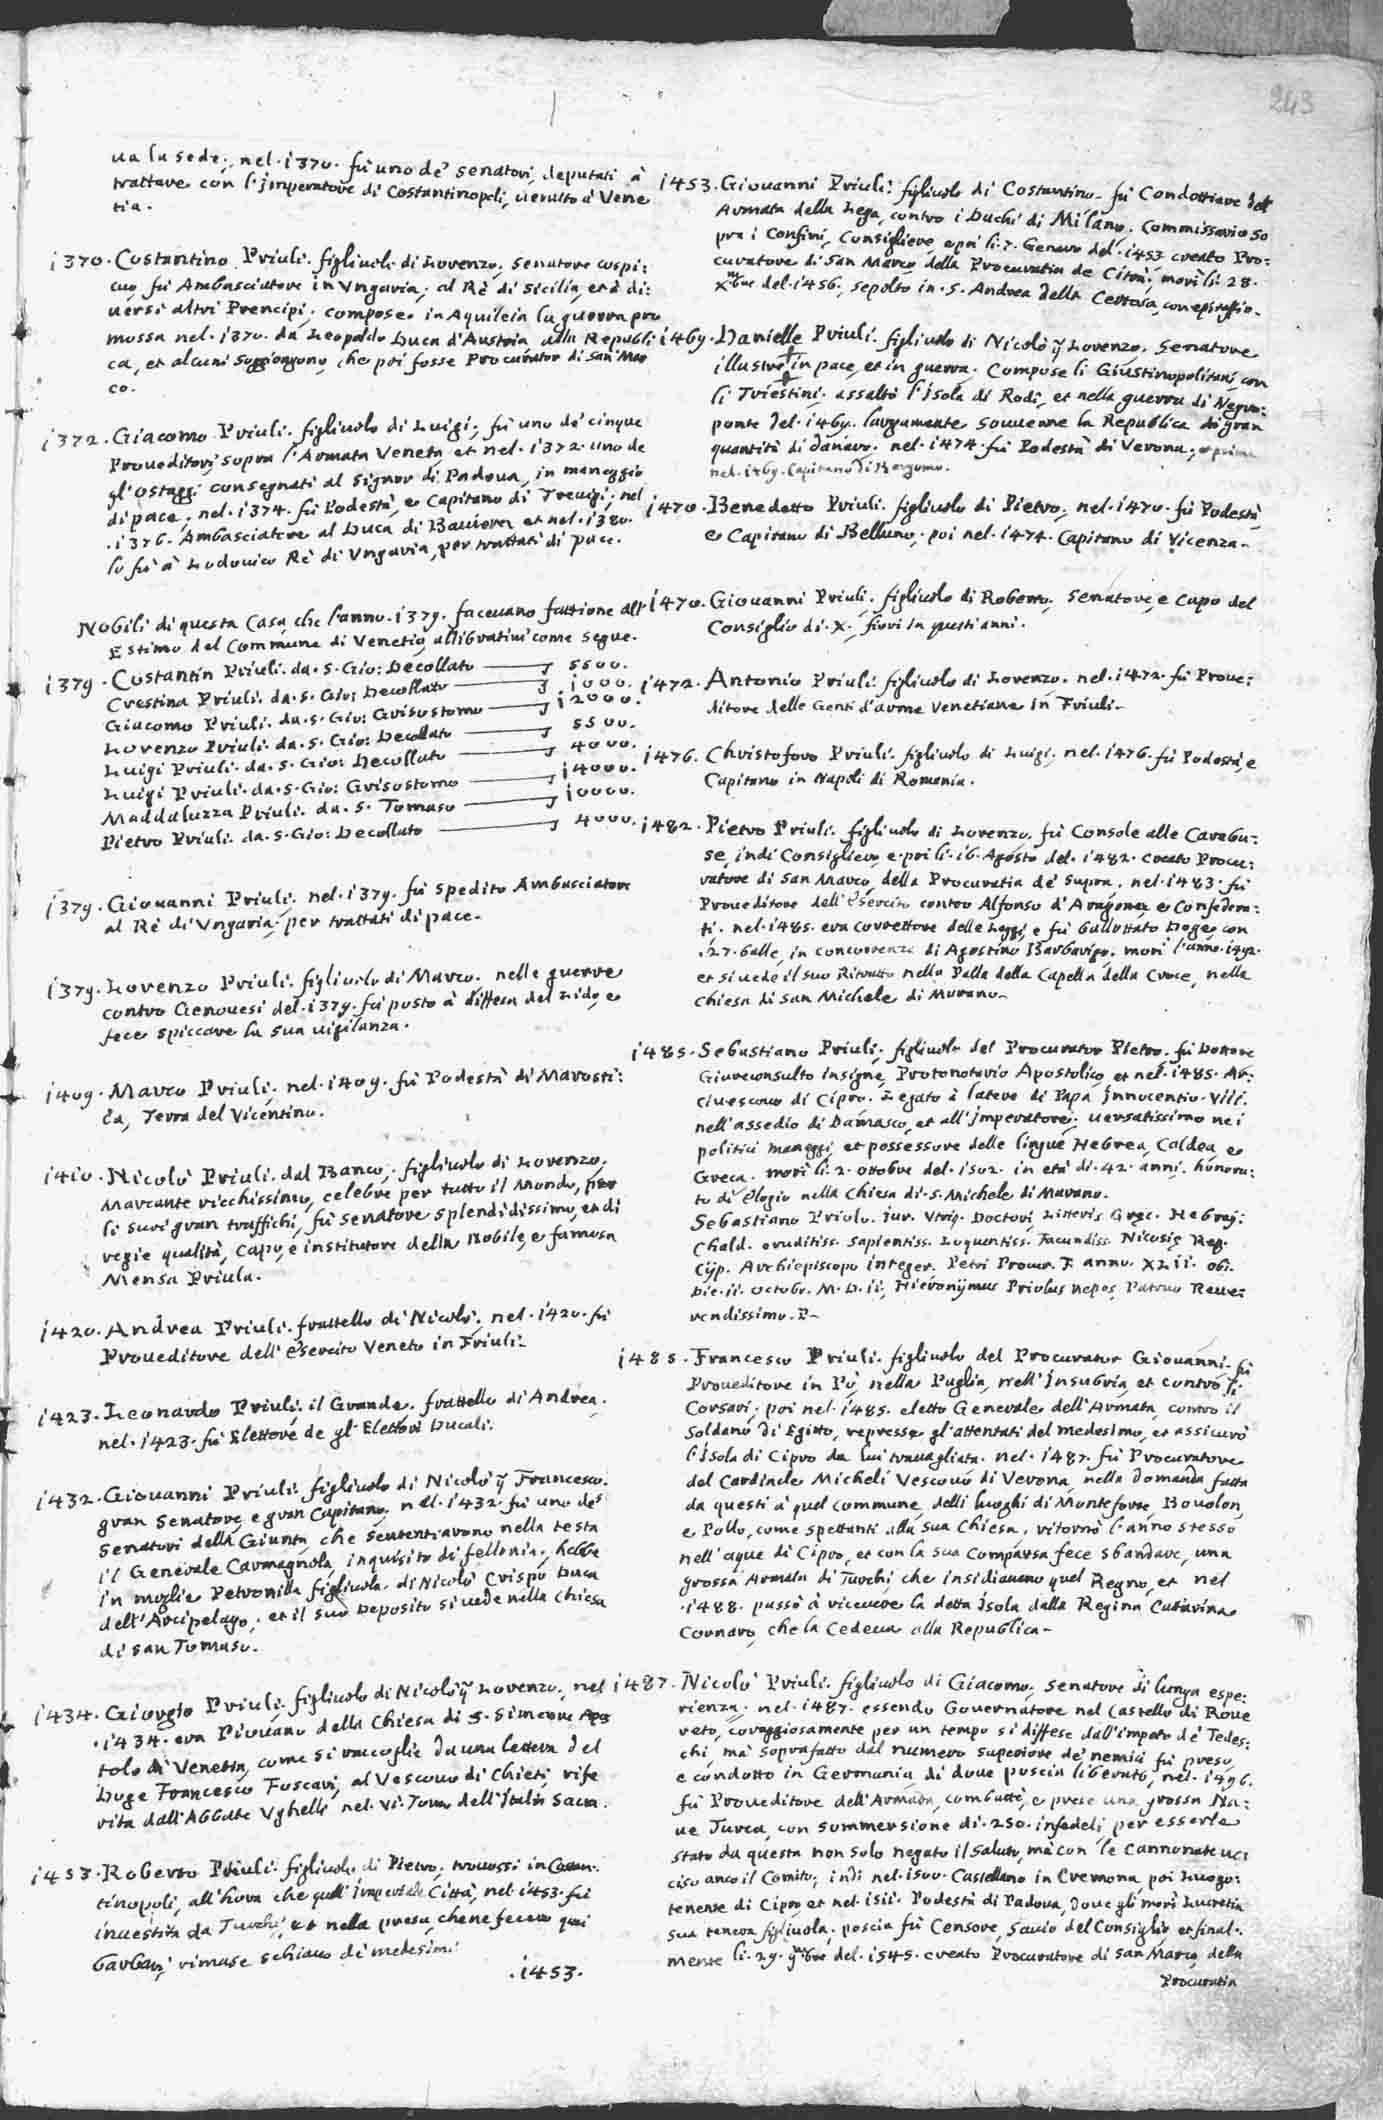 243
ua la sede; nel. 1370. fù uno de' Senatori, deputati à
trattare con l'Imperatore di Costantinopoli, venuto à Vene
tia.
1370. Costantino Priuli. figliuolo di Lorenzo, Senatore cospi:
cuo fù Ambasciatore in Vngaria, al Rè di Sicilia, et à di:
uersi altri Prencipi; compose in Aquileia la guerra pro
mossa nel. 1370. da Leopoldo Duca d'Austria alla Republi
ca, et alcuni soggiongono, che poi fosse Procurator di San Mar
co.
1372. Giacomo Priuli. figliuolo di Luigi; fù uno de' cinque
Proueditori sopra l'Armata Veneta et nel. 1372. uno de
gl'ostaggi consegnati al Signor di Padoua, in maneggio
di pace. nel. 1374. fù Podestà, e Capitano di Treuigi; nel
.1376. Ambasciatore al Duca di Bauiera et nel. 1380.
lo fù à Lodouico Rè di Vngaria, per trattati di pace.
Nobili di questa Casa, che l'anno. 1379. faceuano fattione all'
Estimo del Commune di Venetia, allibrati come segue.
1379. Costantin Priuli. da. S. Gio: Decollato — 5500.
Crestina Priuli. da. S. Gio: Decollato — 1000.
Giacomo Priuli. da. S. Gio: Grisostomo — 12000.
Lorenzo Priuli. da. S. Gio: Decollato — 5500.
Luigi Priuli. da. S. Gio: Decollato — 4000.
Luigi Priuli. da. S. Gio: Grisostomo — 14000.
Maddaluzza Priuli. da. S. Tomaso — 10000.
Pietro Priuli. da. S. Gio: Decollato — 4000.
1379. Giouanni Priuli. nel. 1379. fù spedito Ambasciatore
al Rè di Vngaria, per trattati di pace.
1379. Lorenzo Priuli. figliuolo di Marco. nelle guerre
contro Genouesi del. 1379. fù posto à diffesa del Lido, e
fece spiccare la sua uigilanza.
1409. Marco Priuli. nel. 1409. fù Podestà di Marosti:
ca, Terra del Vicentino.
1410. Nicolò Priuli. dal Banco; figliuolo di Lorenzo,
Marcante ricchissimo, celebre per tutto il Mondo, per
li suoi gran traffichi, fù Senatore splendidissimo, et di
regie qualità, Capo, e institutore della Nobile, e famosa
Mensa Priula.
1420. Andrea Priuli. frattello di Nicolò; nel. 1420. fù
Proueditore dell'esercito Veneto in Friuli.
1423. Leonardo Priuli. il Grande. frattello di Andrea.
nel. 1423. fù Elettore de gl'Elettori Ducali.
1432. Giouanni Priuli. figliuolo di Nicolò q Francesco.
gran Senatore, e gran Capitano, nel. 1432. fù uno de'
Senatori della Giunta, che sententiarono nella testa
il Generale Carmagnola, inquisito di fellonia; hebbe
in moglie Petronilla figliuola di Nicolò Crispo Duca
dell'Arcipelago; et il suo Deposito si uede nella Chiesa
di San Tomaso.
1434. Giorgio Priuli. figliuolo di Nicolò q Lorenzo, nel
.1434. era Piouano della Chiesa di S. Simeone Apos
tolo di Venetia, come si raccoglie da una lettera del
Doge Francesco Foscari, al Vescouo di Chieti, rife
rita dall'Abbate Vghelli nel. VI. Tomo dell'Italia Sacra.
1453. Roberto Priuli. figliuolo di Pietro; trouossi in Costan.
tinopoli, all'hora che quell'imperiale Città, nel. 1453. fù
inuestita da Turchi, et nella presa, che ne fecero quei
Barbari, rimase schiauo di medesimi
.1453.
1453. Giouanni Priuli. figliuolo di Costantino. fù Condottiere dell'
Armata della Lega, contro i Duchi di Milano. Commissario so
pra i Confini, Consigliere, e poi li. 7. Genaro del. 1453. creato Pro:
curatore di San Marco della Procuratia de Citrà; morì li. 28.
Xmbre del. 1456, sepolto in. S. Andrea della Certosa, con epitaffio.
1469. Danielle Priuli. figliuolo di Nicolò q Lorenzo. Senatore
illustre in pace, et in guerra. Compose li Giustinopolitani, con
li Triestini; assaltò l'Isola di Rodi, et nella guerra di Negro:
ponte del. 1469. largamente souuenne la Republica di gran
quantità di danaro. nel. 1474. fù Podestà di Verona; e prima
nel. 1469. Capitano di Bergomo.
1470. Benedetto Priuli. figliuolo di Pietro, nel. 1470. fù Podestà
e Capitano di Belluno; poi nel. 1474. Capitano di Vicenza.
1470. Giouanni Priuli. figliuolo di Roberto. Senatore, e Capo del
Consiglio di. X. fiorì in questi anni.
1472. Antonio Priuli. figliuolo di Lorenzo. nel. 1472. fù Proue:
ditore delle Genti d'arme Venetiane in Friuli.
1476. Christoforo Priuli. figliuolo di Luigi. nel. 1476. fù Podestà, e
Capitano in Napoli di Romania.
1482. Pietro Priuli. figliuolo di Lorenzo. fù Console alle Carabu:
se, indi Consigliere, e poi li. 16. Agosto del. 1482. creato Procu:
ratore di San Marco, della Procuratia de' Supra. nel. 1483. fù
Proueditore dell'esercito contro Alfonso d'Aragona, e Confedera:
ti. nel. 1485. era correttore delle Leggi, e fù ballottato Doge, con
.27. balle, in concorrenza di Agostino Barbarigo. morì l'anno. 1492.
et si uede il suo Ritratto nella Palla della Capella della Croce, nella
Chiesa di San Michele di Murano.
1485. Sebastiano Priuli. figliuolo del Procurator Pietro. fù Dottore
Giureconsulto insigne, Protonotario Apostolico, et nel. 1485. Ar:
ciuescouo di Cipro. Legato à latere di Papa Innocentio. VIII.
nell'assedio di Damasco, et all'Imperatore; uersatissimo nei
politici maneggi, et possessore delle lingue Hebrea, Caldea, e
Greca. morì li. 2. ottobre del. 1502. in età di. 42. anni. honora:
to di elogio nella Chiesa di. S. Michele di Murano.
Sebastiano Priolo. Iur. Vtriq. Doctori, Litteris Gręc. Hebraj:
Chald. eruditiss. Sapientiss. Loquentiss. Facundiss. Nicosię Reg.
Cyp. Archiepiscopo integer. Petri Procur. F. anno. XLII. obi.
Die. II. Octobr. M. D. II, Hieronymus Priolus nepos, Patruo Reue:
rendissimo. P.
1485. Francesco Priuli. figliuolo del Procurator Giouanni. fù
Proueditore in Pò, nella Puglia, nell'Insubria, et contro li
Corsari; poi nel. 1485. eletto Generale dell'Armata, contro il
Soldano di Egitto, represse gl'attentati del medesimo, et assicurò
l'Isola di Cipro da lui trauagliata. nel. 1487. fù Procuratore
del Cardinale Micheli Vescouo di Verona, nella domanda fatta
da questi à quel commune, delli luoghi di Monteforte, Bouolon,
e Pollo, come spettanti alla sua Chiesa. ritornò l'anno stesso
nell'aque di Cipro, et con la sua Comparsa fece sbandare, una
grossa Armata di Turchi, che insidiauano quel Regno, et nel
.1488. passò à riceuere la detta Isola dalla Regina Cattarina
Cornaro, che la Cedeua alla Republica.
1487. Nicolò Priuli. figliuolo di Giacomo, Senatore di lunga espe:
rienza; nel. 1487. essendo Gouernatore nel Castello di Roue
reto, coraggiosamente per un tempo si diffese dall'impeto de' Tedes:
chi, mà soprafatto dal numero superiore de' nemici fù preso,
e condotto in Germania di doue poscia liberato, nel. 1496.
fù Proueditore dell'Armata, combattè, e prese una grossa Na:
ue Turca, con sommersione di. 250. infedeli, per esserle
stato da questa non solo negato il saluto, mà con le cannonate uc:
ciso anco il Comito; indi nel. 1500. Castellano in Cremona, poi Luogo:
tenente di Cipro, et nel. 1511. Podestà di Padoua, doue gli morì Lucretia
sua tenera figliuola; poscia fù Censore, Sauio del Consiglio, et final.
mente li. 29. 9mbre del. 1545. creato Procuratore di San Marco, della
Procuratia